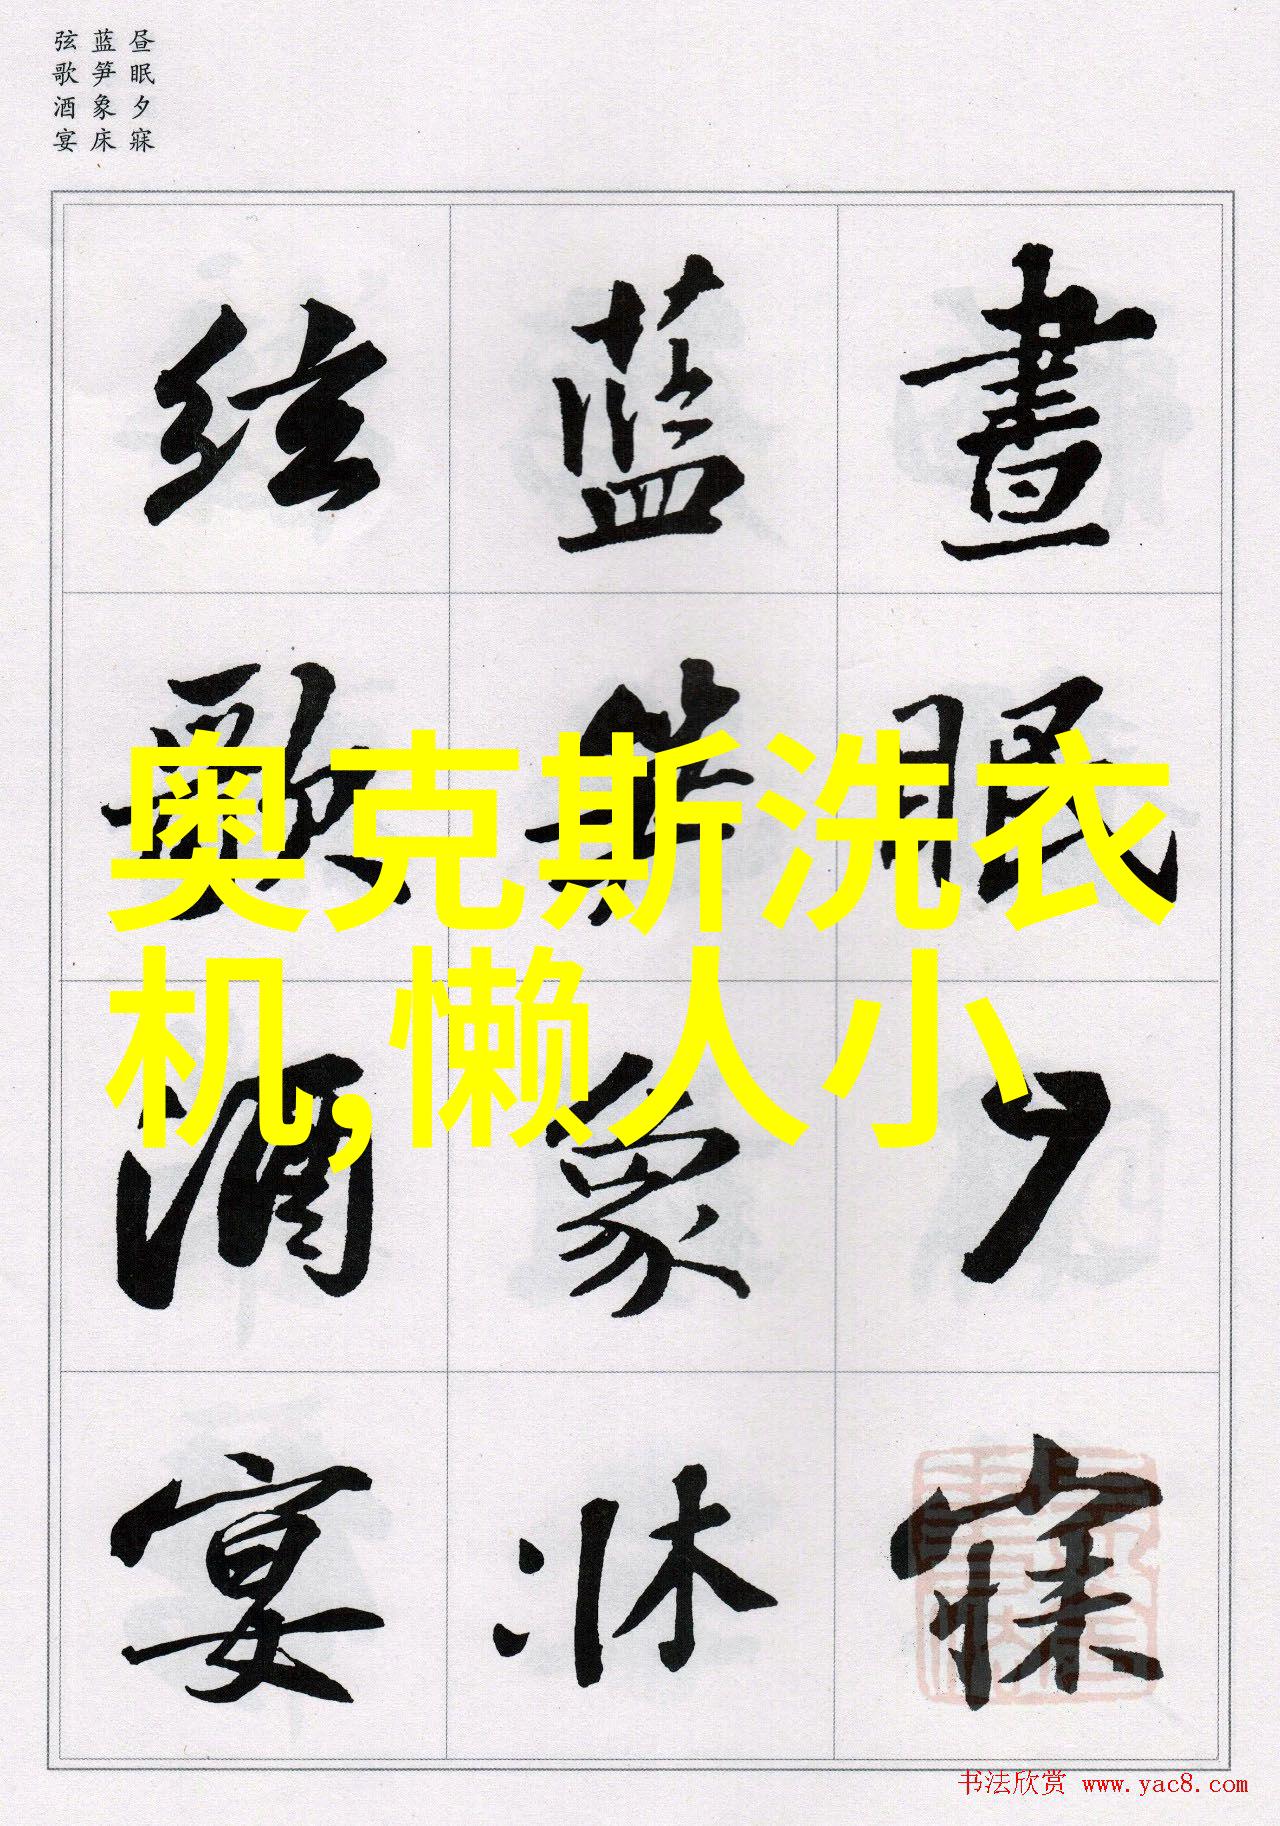 昼眠夕寐
蓝笋象床
弦歌酒宴
晝眠夕寐
藍笋象牀
絃歌酒宴
奥克斯洗衣
机,懒人小
书法欣赏 www.yac8.com